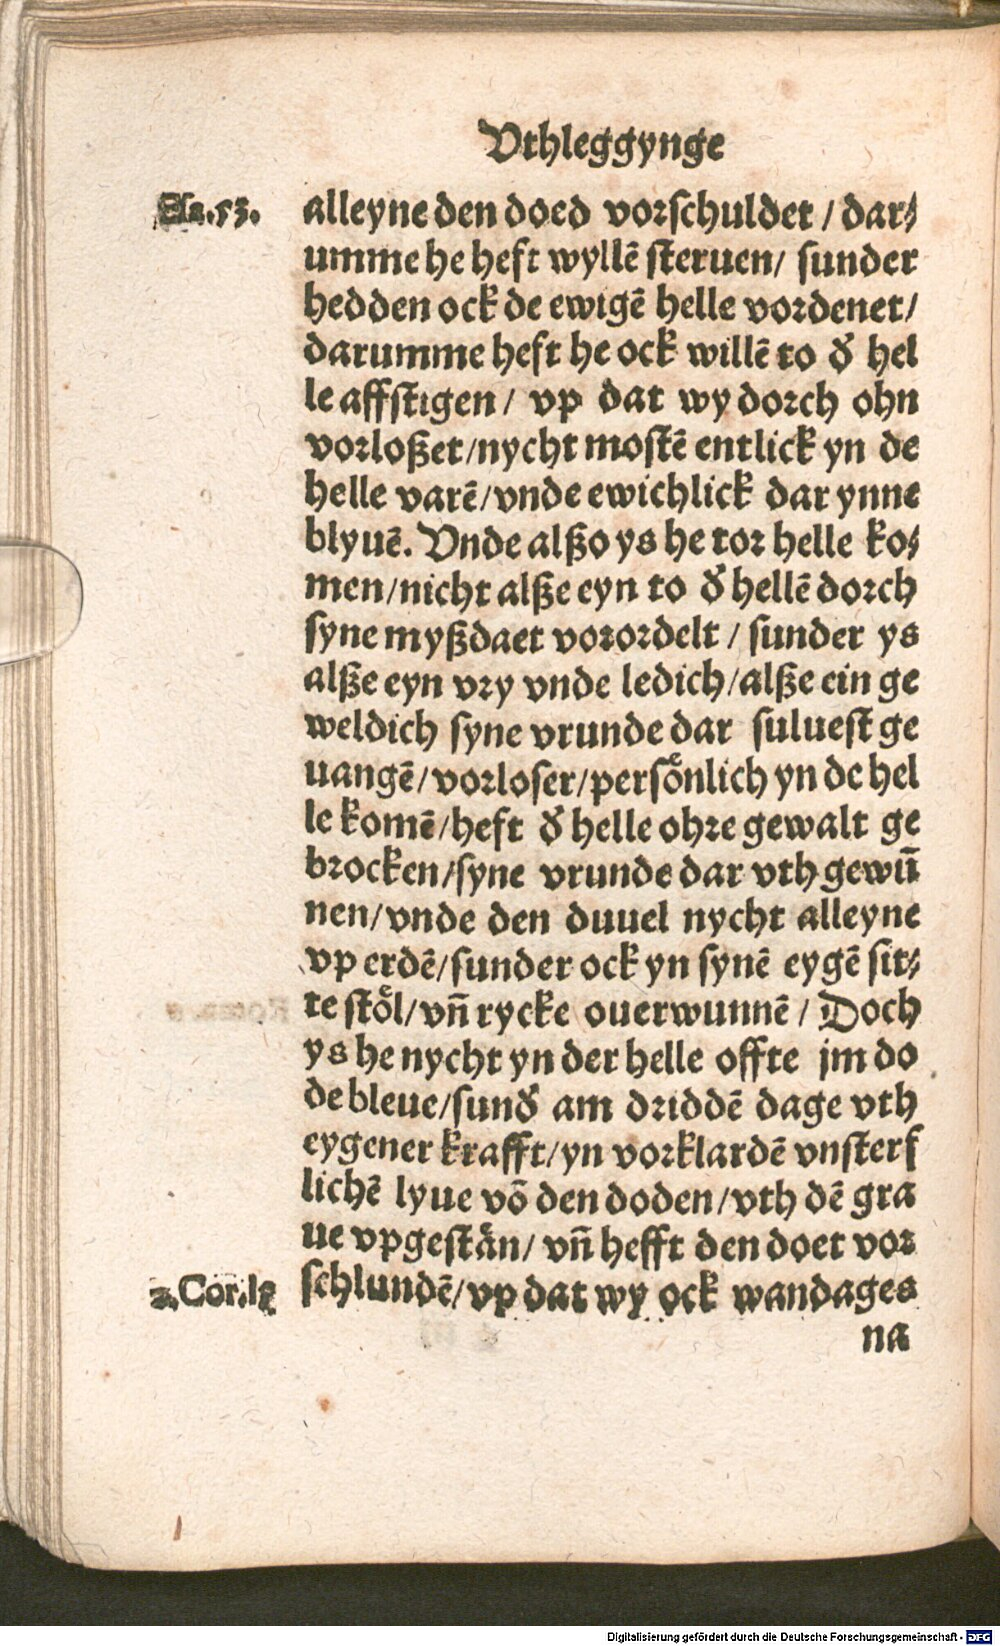 Vthleggynge
Esa.53.
alleyne den doed vorschuldet / dar⸗
umme he heft wyllē steruen / sunder
hedden ock de ewigē helle vordenet /
darumme heft he ock willē to d̕ hel
le affstigen / vp dat wy dorch ohn
vorloßet / nycht mostē entlick yn de
helle varē / vnde ewichlick dar ynne
blyuē. Vnde alßo ys he tor helle ko⸗
men / nicht alße eyn to d̕ hellē dorch
syne myßdaet vorordelt / sunder ys
alße eyn vry vnde ledich / alße ein ge
weldich syne vrunde dar suluest ge
uangē / vorloser / persoͤnlich yn de hel
le komē / heft d̕ helle ohre gewalt ge
brocken / syne vrunde dar vth gewūñ
nen / vnde den duuel nycht alleyne
vp erdē / sunder ock yn synē eygē sit⸗
te stoͤl / vñ rycke ouerwunnē / Doch
ys he nycht yn der helle offte jm do
de bleue / sund̕ am driddē dage vth
eygener krafft / yn vorklardē vnsterf
lichē lyue vō den doden / vth dē gra
ue vpgestaͤn / vñ hefft den doet vor
2.Cor.
schlundē / vp dat wy ock wandages
na
Digitalisierung gefördert durch die Deutsche Forschungsgemeinschaft - DFG